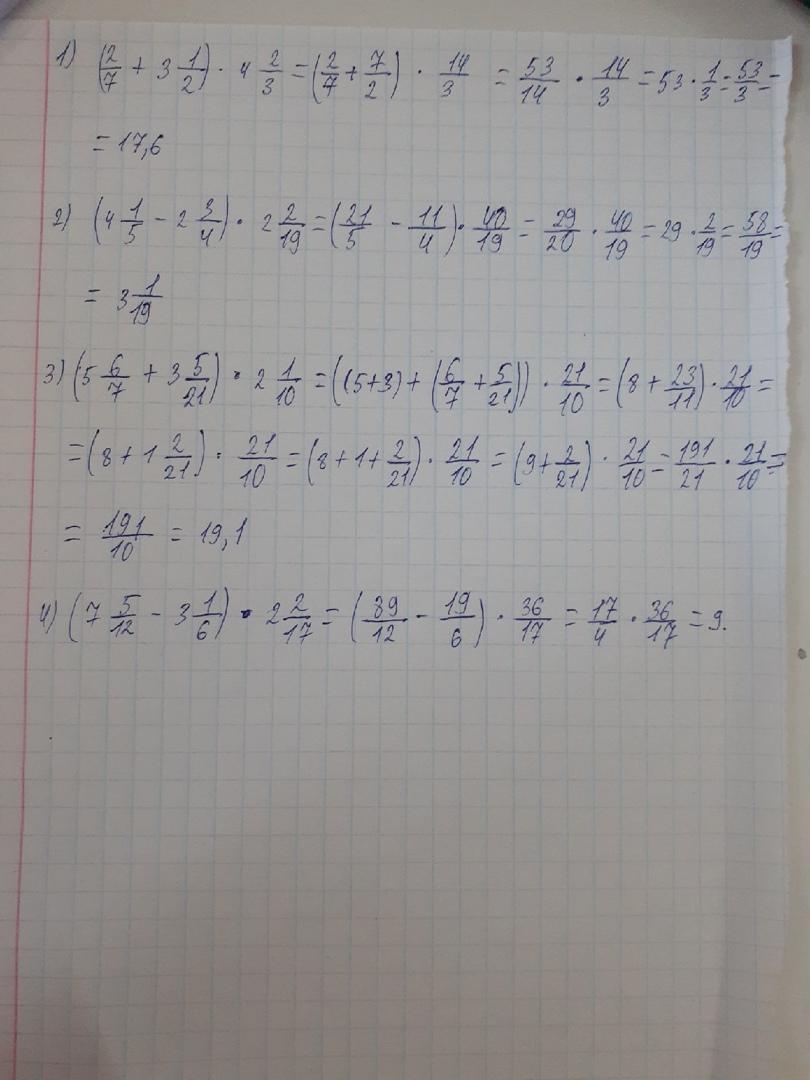 1) (2/7 + 3 1/2) · 4 2/3 = (2/7 + 7/2) · 14/3 = 53/14 · 14/3 = 53 · 1/3 = 53/3 =
= 17,6
2) (4 1/5 - 2 3/4) · 2 2/19 = (21/5 - 11/4) · 40/19 = 29/20 · 40/19 = 29 · 2/19 = 58/19 =
= 3 1/19
3) (5 6/7 + 3 5/21) · 2 1/10 = ((5+3) + (6/7 + 5/21)) · 21/10 = (8 + 23/11) · 21/10 =
= (8 + 1 2/21) · 21/10 = (8 + 1 + 2/21) · 21/10 = (9 + 2/21) · 21/10 = 191/21 · 21/10 =
= 191/10 = 19,1
4) (7 5/12 - 3 1/6) · 2 2/17 = (89/12 - 19/6) · 36/17 = 17/4 · 36/17 = 9.